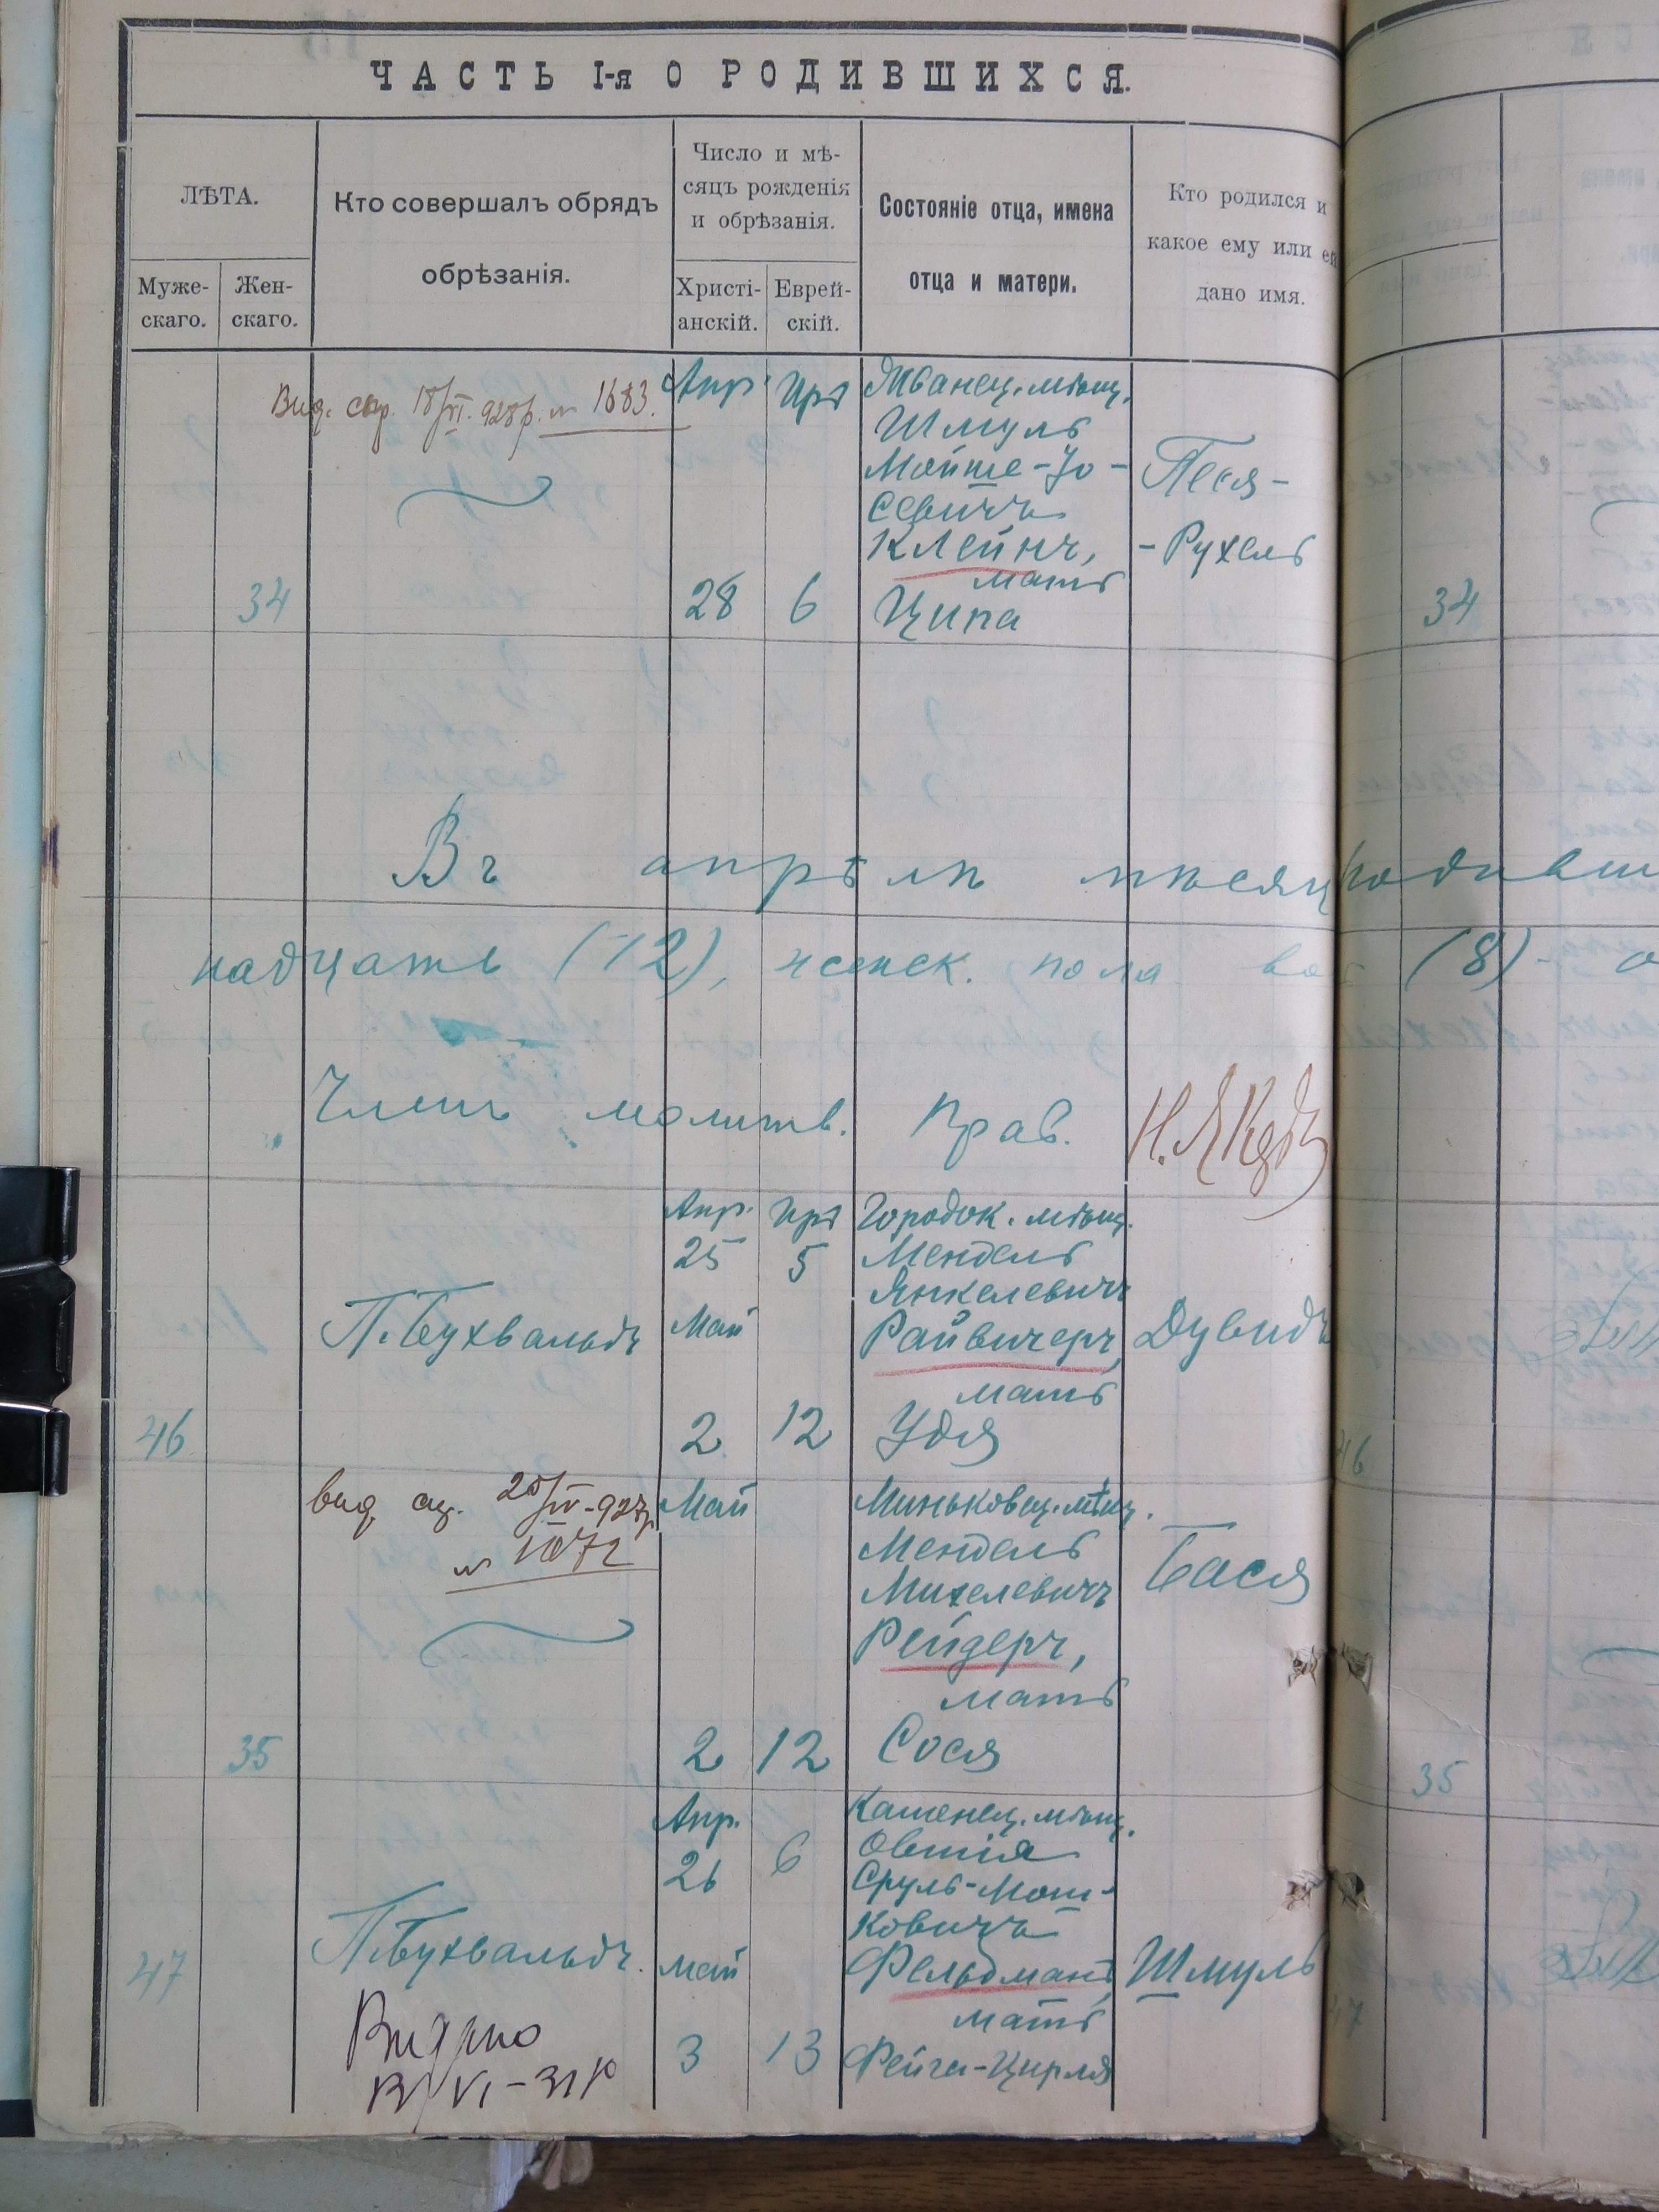 ЧАСТЬ I-я О РОДИВШИХСЯ.
ЛѢТА.
Муже-
скаго.
Жен-
скаго.
Кто совершалъ обрядъ
обрѣзанія.
Число и мѣ-
сяцъ рожденія
и обрѣзанія.
Христі-
анскій.
Еврей-
скій.
Состояніе отца, имена
отца и матери.
Кто родился и
какое ему или ей
дано имя.
34
Вид. 18/VI. 928р. № 1683.
Апр. Иръ
28 6
Жванец. мѣщ.
Шмуль
Мойше-Іо-
севичъ
Клейнъ,
мать
Ципа
Песя-
-Рухель
34
Въ апрѣлѣ мѣсяц
надцать (12), женск. пола (8)-
Членъ молитв. Прав.
46
П. Бухвальдъ
Апр. Иръ
25 5
Май
2 12
Городок. мѣщ.
Мендель
Янкелевичъ
Райвичеръ,
мать
Удя
Дувидъ
46
35
вид. 20/IV-927р.
№ 1072
Май
2 12
Миньковец. мѣщ.
Мендель
Михелевичъ
Рейдеръ,
мать
Сося
Бася
35
47
П. Бухвальдъ.
Видано
13/VI-31р
Апр.
26 6
Май
3 13
Каменец. мѣщ.
Овшія
Сруль-Мош-
ковичъ
Фельдманъ,
мать
Фейга-Цирля
Шмуль
47